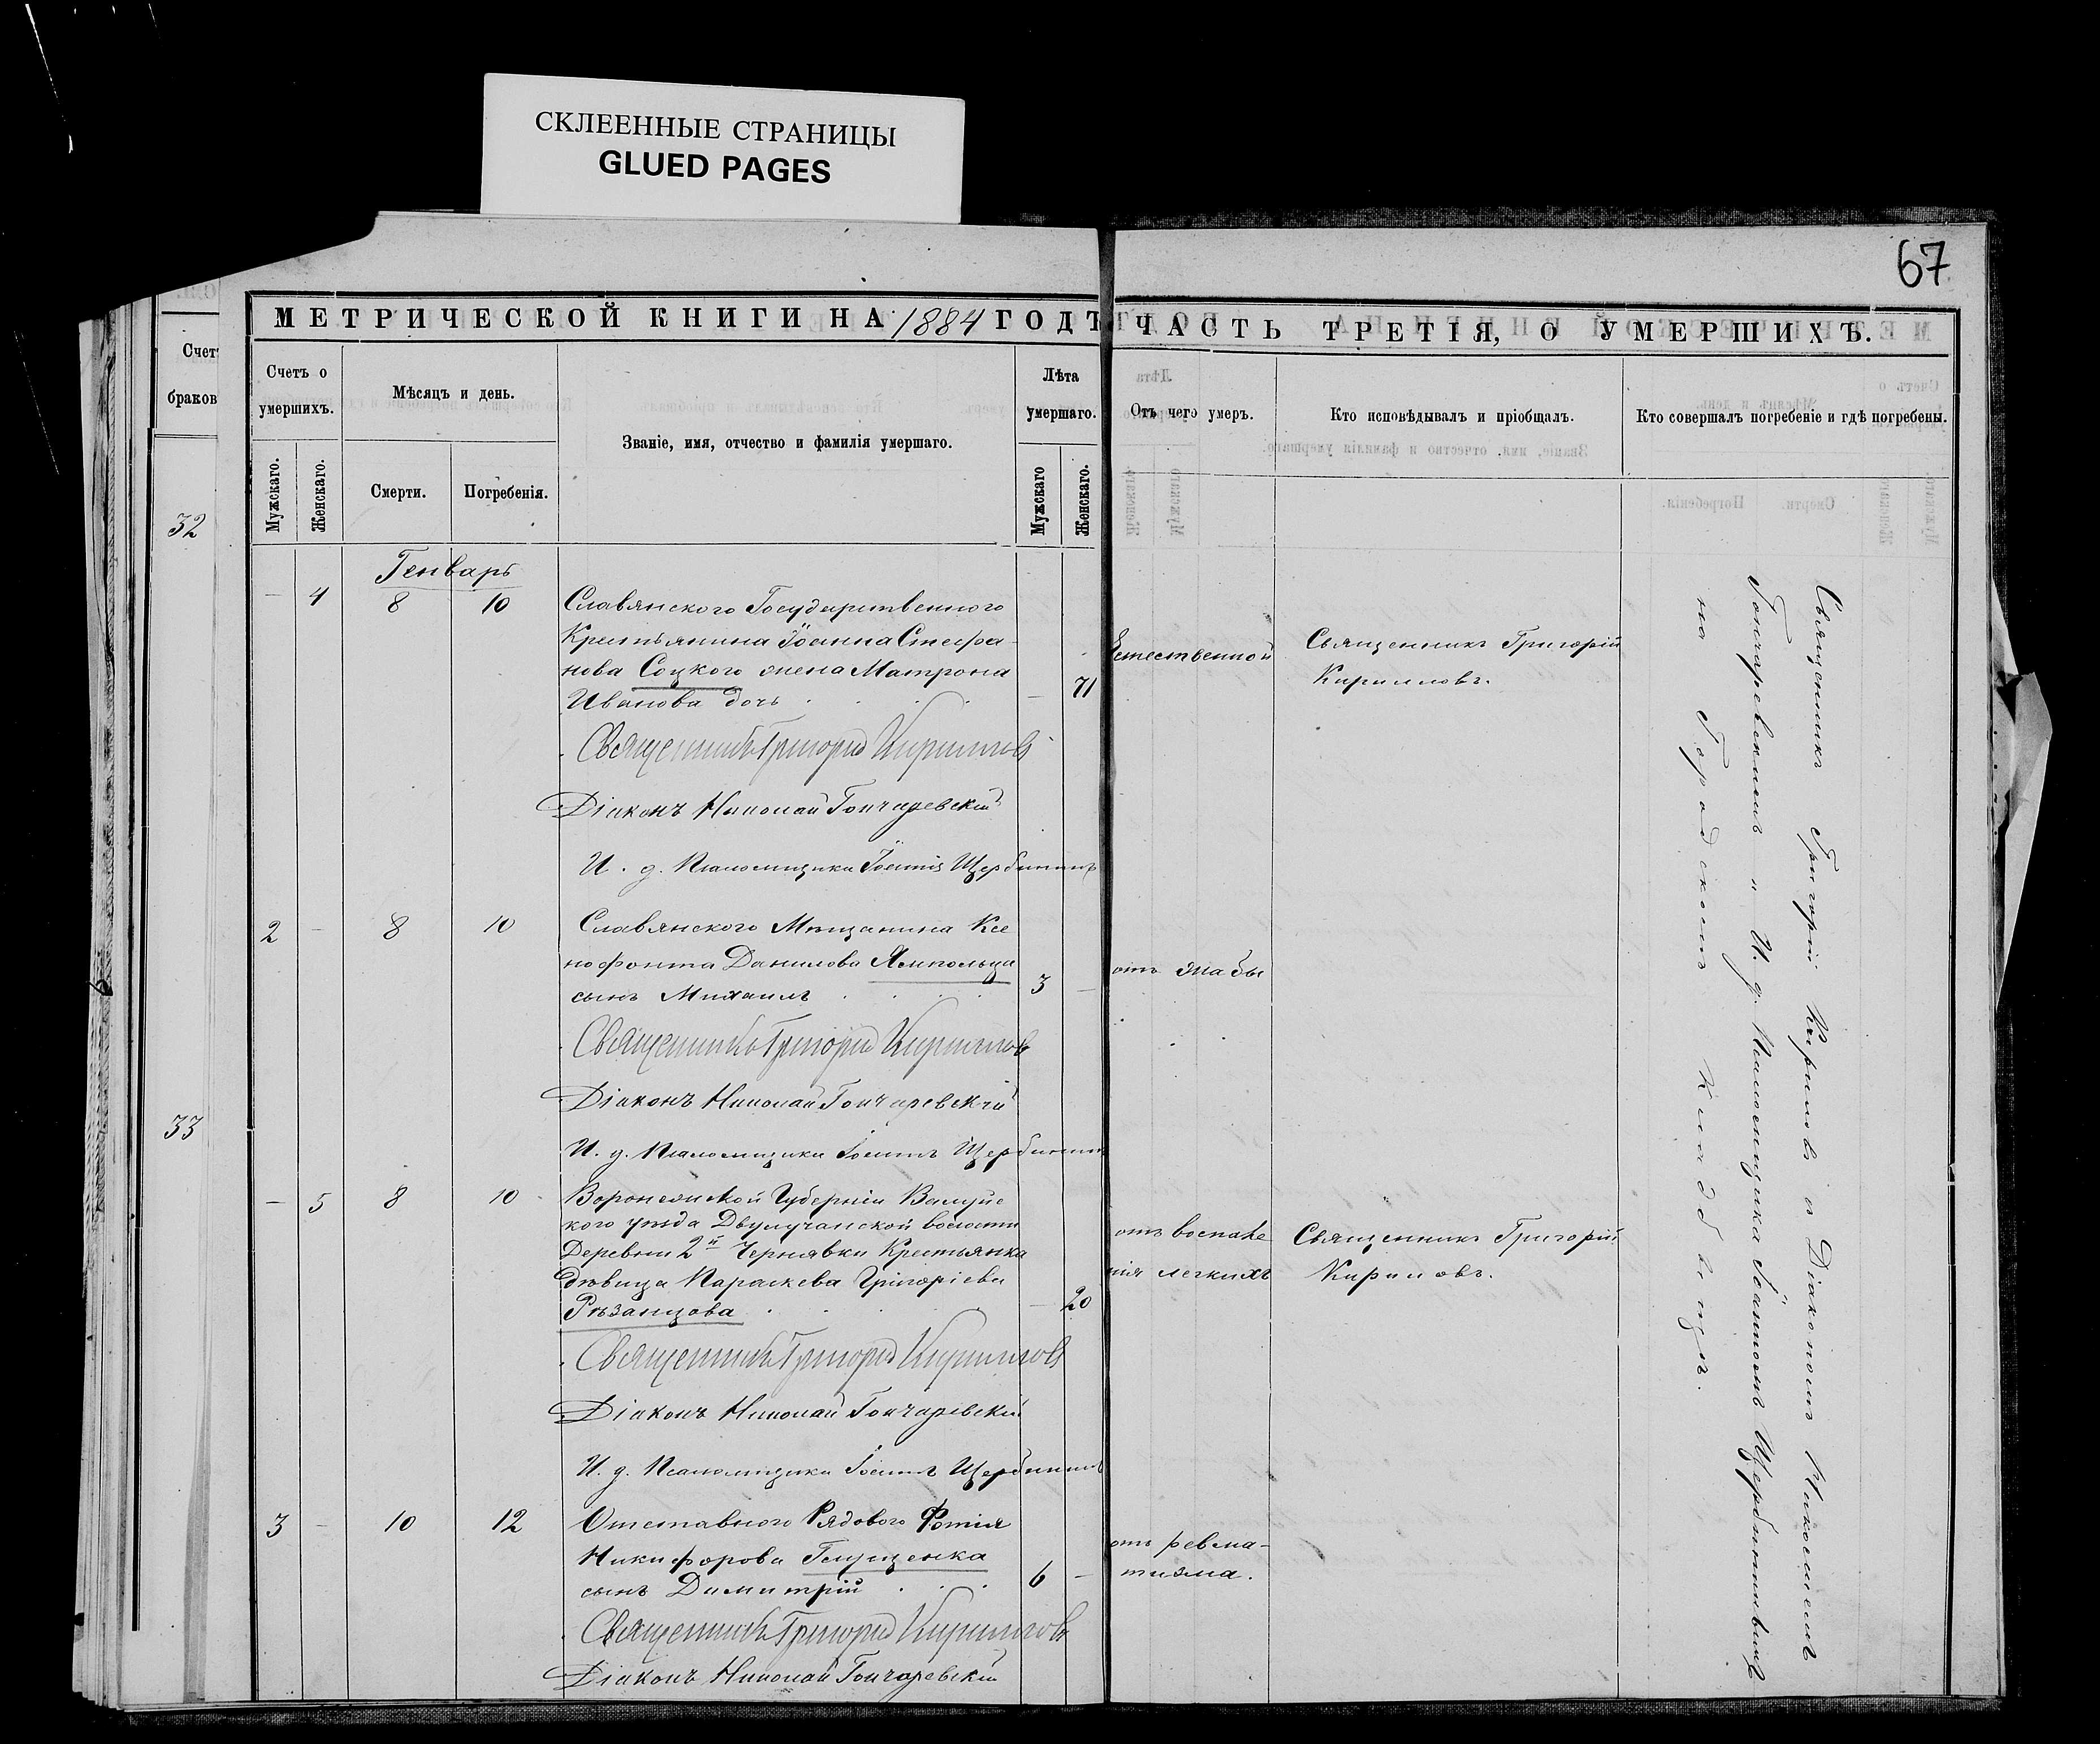 СКЛЕЕННЫЕ СТРАНИЦЫ
GLUED PAGES
67
МЕТРИЧЕСКОЙ КНИГИ НА 1884 ГОДЪ
ЧАСТЬ ТРЕТІЯ, О УМЕРШИХЪ.
Счет
браков
32
33
Счетъ о умершихъ.
Мужскаго.
Женскаго.
Мѣсяцъ и день.
Смерти.
Погребенія.
Званіе, имя, отчество и фамилія умершаго.
Лѣта умершаго.
Мужскаго
Женскаго.
Отъ чего умеръ.
Кто исповѣдывалъ и пріобщалъ.
Кто совершалъ погребеніе и гдѣ погребены.
Генварь
4 8 10
Славянского Государственного
Крестьянина Іоанна Стефа-
нова Соцкого жена Матрона
Иванова дочь
71
Естественной
Священникъ Григорій
Кирилловъ.
Священникъ Григорій Кириллов
Діаконъ Николай Гончаревскій
И. д. Псаломщика Іоаннъ Щербининъ
2 8 10
Славянского Мѣщанина Ксе
нофонта Данилова Ямпольца
сынъ Михаилъ
3
отъ жабы
Священникъ Григорій Кириллов
Діаконъ Николай Гончаревскій
И. д. Псаломщика Іоаннъ Щербининъ
5 8 10
Воронежской Губерніи Валуйс
кого уѣзда Двулучанской волости
Деревни 2й Чернявки Крестьянка
дѣвица Параскева Григоріева
Рѣзанцова
20
отъ воспале
нія легкихъ
Священникъ Григорій
Кириловъ.
Священникъ Григорій Кириллов
Діаконъ Николай Гончаревскій
И. д. Псаломщика Іоаннъ Щербининъ
3 10 12
Отставного Рядового Фотія
Никифорова Глущенка
сынъ Димитрій
6
отъ ревма-
тизма.
Священникъ Григорій Кириллов
Діаконъ Николай Гончаревскій
Священникъ Григорій Кириловъ с Діакономъ Николаемъ
Гончаревскимъ и И. д. Псаломщика Іоанномъ Щербининымъ
на Городскомъ Кладбищѣ.